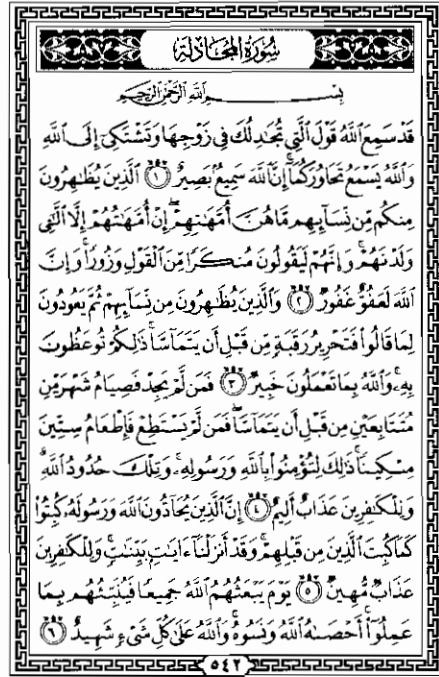 سُورَةُ المُجَادلَة
بِسْمِ اللَّهِ الرَّحْمَٰنِ الرَّحِيمِ
قَدْ سَمِعَ اللَّهُ قَوْلَ الَّتِي تُجَادِلُكَ فِي زَوْجِهَا وَتَشْتَكِي إِلَى اللَّهِ
وَاللَّهُ يَسْمَعُ تَحَاوُرَكُمَا إِنَّ اللَّهَ سَمِيعٌ بَصِيرٌ ١ الَّذِينَ يُظَاهِرُونَ
مِنكُم مِّن نِّسَائِهِم مَّا هُنَّ أُمَّهَاتِهِمْ إِنْ أُمَّهَاتُهُمْ إِلَّا اللَّائِي
وَلَدْنَهُمْ وَإِنَّهُمْ لَيَقُولُونَ مُنكَرًا مِّنَ الْقَوْلِ وَزُورًا وَإِنَّ
اللَّهَ لَعَفُوٌّ غَفُورٌ ٢ وَالَّذِينَ يُظَاهِرُونَ مِن نِّسَائِهِمْ ثُمَّ يَعُودُونَ
لِمَا قَالُوا فَتَحْرِيرُ رَقَبَةٍ مِّن قَبْلِ أَن يَتَمَاسَّا ذَٰلِكُمْ تُوعَظُونَ
بِهِ وَاللَّهُ بِمَا تَعْمَلُونَ خَبِيرٌ ٣ فَمَن لَّمْ يَجِدْ فَصِيَامُ شَهْرَيْنِ
مُتَتَابِعَيْنِ مِن قَبْلِ أَن يَتَمَاسَّا فَمَن لَّمْ يَسْتَطِعْ فَإِطْعَامُ سِتِّينَ
مِسْكِينًا ذَٰلِكَ لِتُؤْمِنُوا بِاللَّهِ وَرَسُولِهِ وَتِلْكَ حُدُودُ اللَّهِ
وَلِلْكَافِرِينَ عَذَابٌ أَلِيمٌ ٤ إِنَّ الَّذِينَ يُحَادُّونَ اللَّهَ وَرَسُولَهُ كُبِتُوا
كَمَا كُبِتَ الَّذِينَ مِن قَبْلِهِمْ وَقَدْ أَنزَلْنَا آيَاتٍ بَيِّنَاتٍ وَلِلْكَافِرِينَ
عَذَابٌ مُّهِينٌ ٥ يَوْمَ يَبْعَثُهُمُ اللَّهُ جَمِيعًا فَيُنَبِّئُهُم بِمَا
عَمِلُوا أَحْصَاهُ اللَّهُ وَنَسُوهُ وَاللَّهُ عَلَىٰ كُلِّ شَيْءٍ شَهِيدٌ ٦
٥٤٢